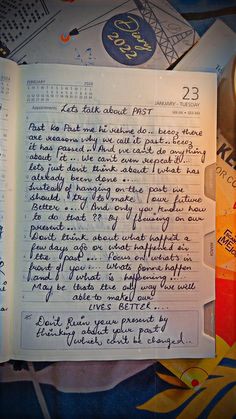 Diary
2022
FEBRUARY
2024
23
JANUARY - TUESDAY
Appointments
Lets talk about PAST
Past Ko Past me hi rehne do... becoz there
are reasons why we call it past... becoz
it has passed... And we can't do anything
about it... We can't even repeat it...
lets just don't think about what has
already been done...
Instead of hanging on the past we
should try to make our future
Better... And only you know how
to do that ?? By focusing on our
present...
Don't think about what happed a
few days ago or what happened in
the past... Focus on what's in
front of you... whats gonne happen
and what is happening...
May be thats the only way we will
able to make our
LIVES BETTER....
Don't Ruin your present by
thinking about your past
which can't be changed...